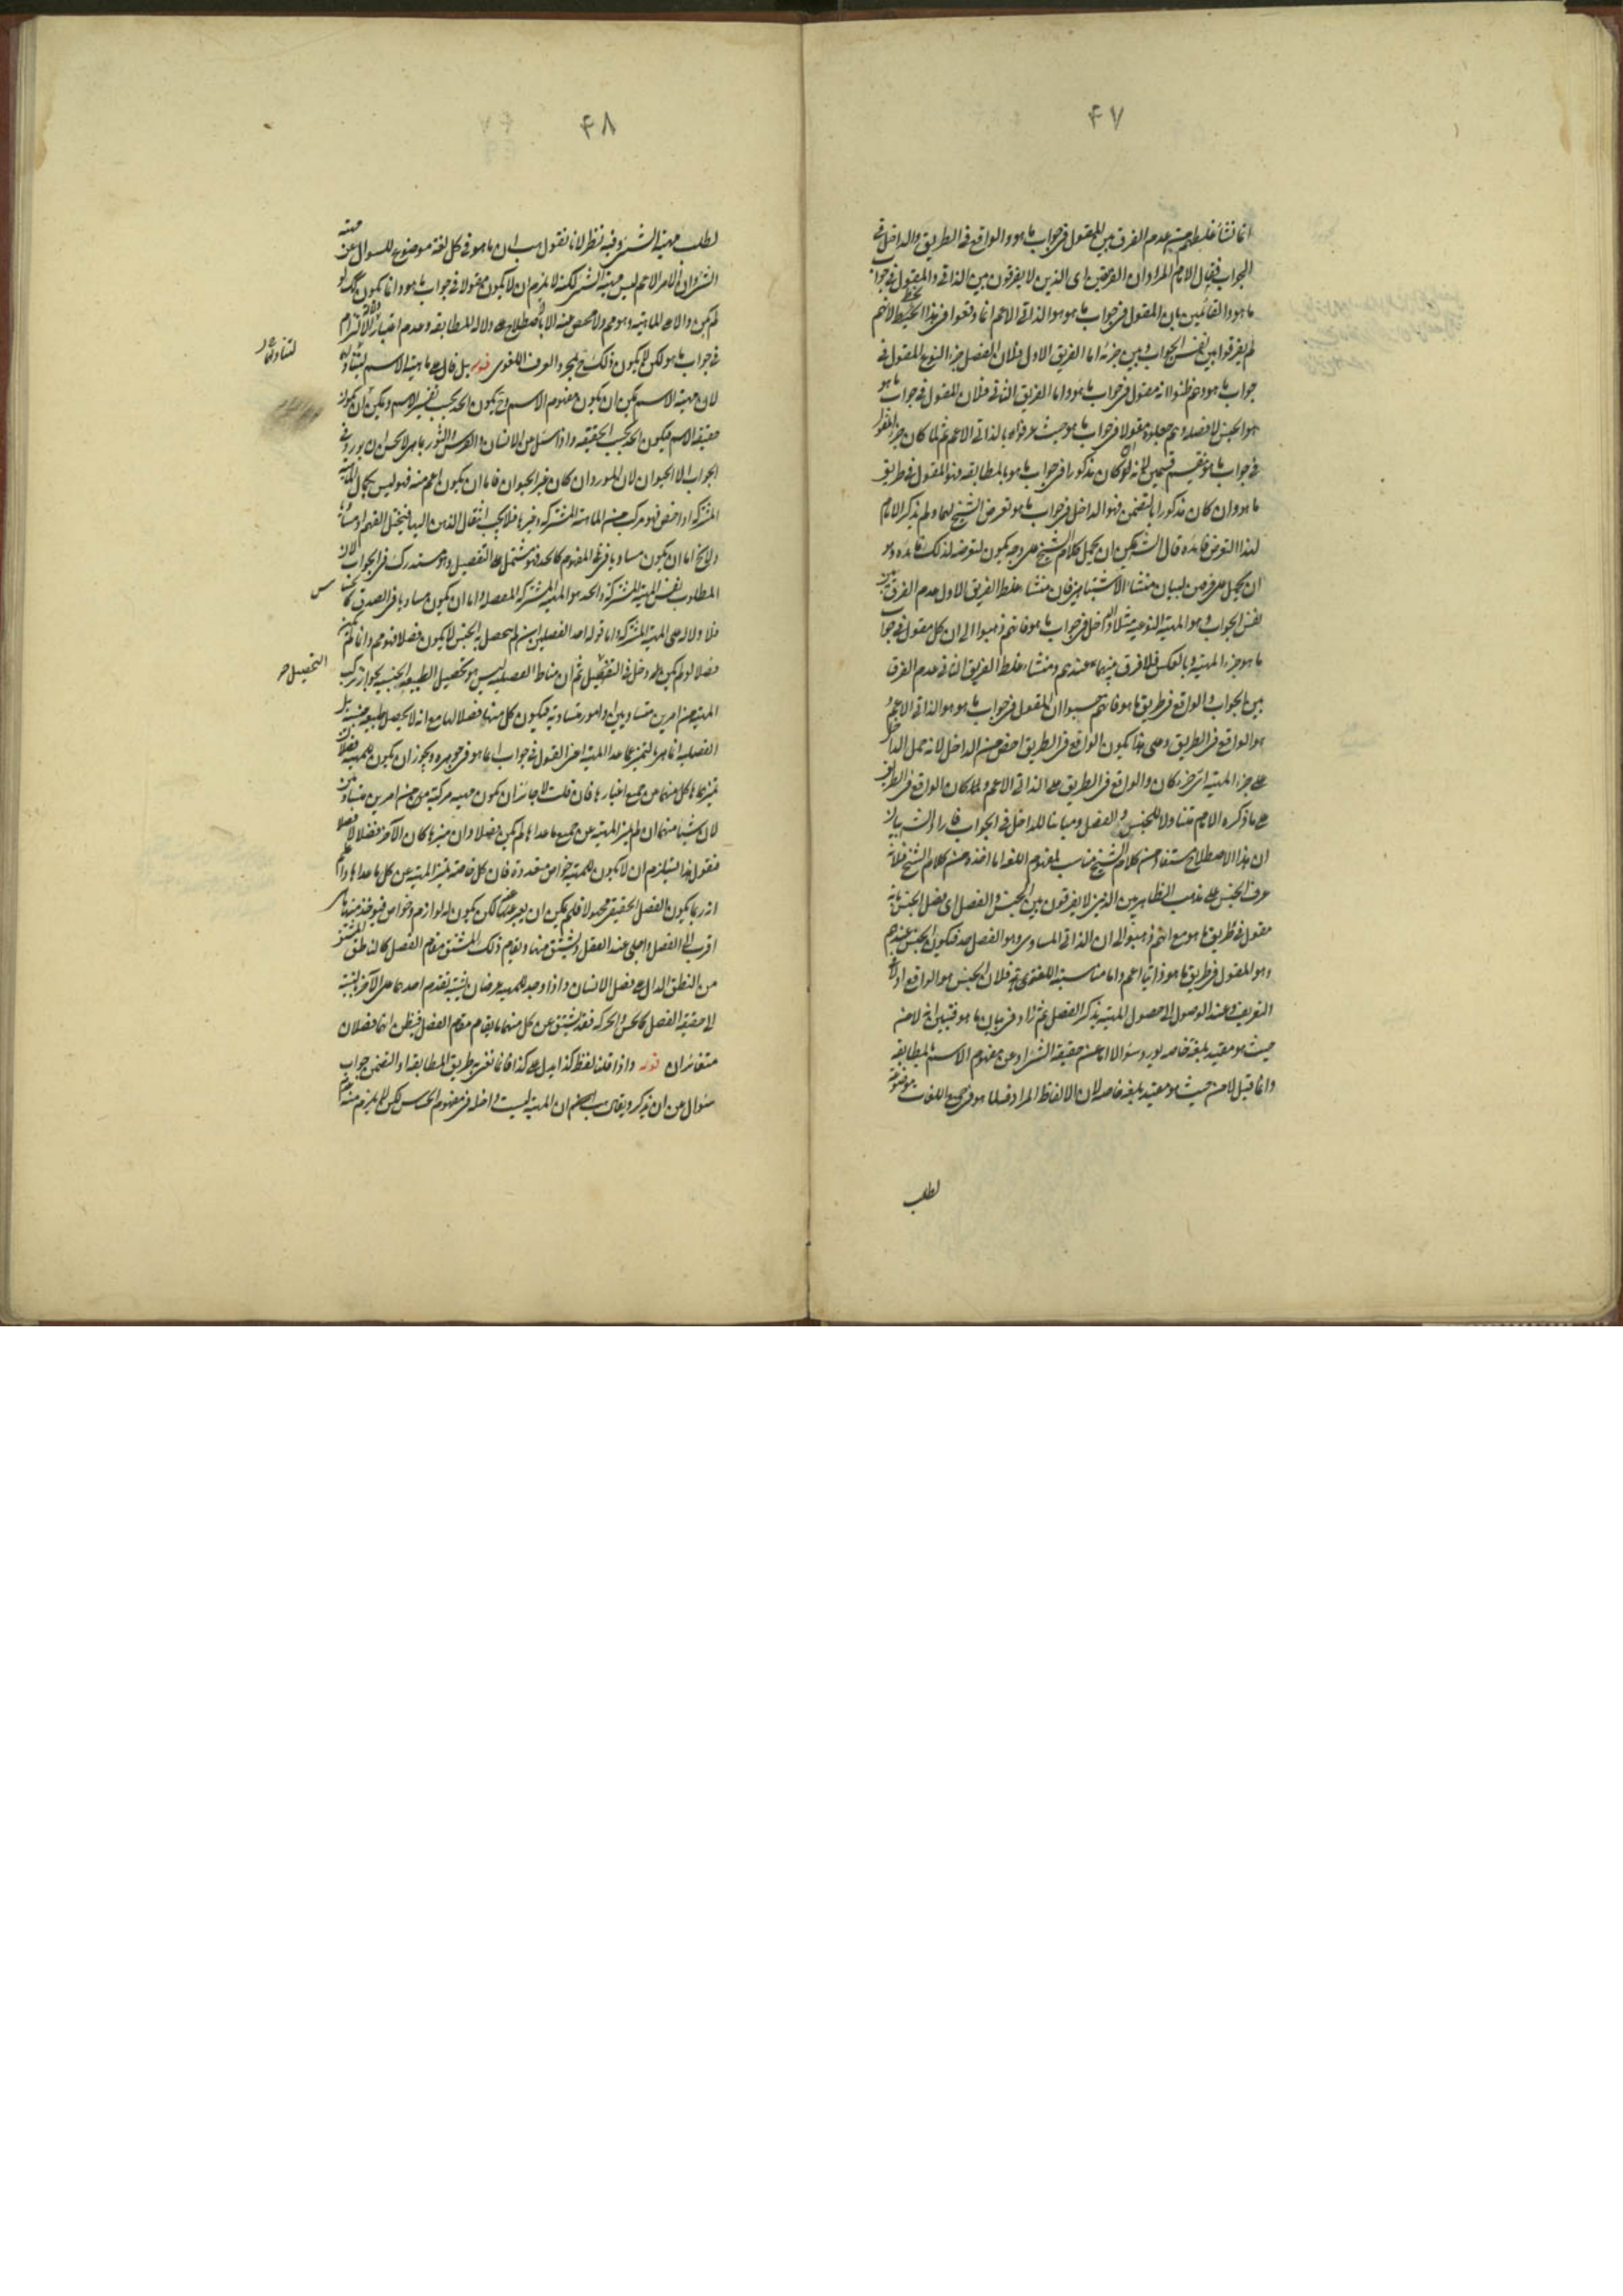 ۴۷
انما نشأ غلطهم من عدم الفرق بين المقول فى جواب ما هو والواقع فى الطريق والداخل فى
الجواب فيقال الامام المراد ان الفريقين اى الذين لا يفرقون بين الذاتى والمقول فى جواب
ما هو والقائلين بان المقول فى جواب ما هو هو الذاتى الاعم انما وقعوا فى هذا الخبط لانهم
لم يفرقوا بين نفس الجواب وبين جزئه اما الفريق الاول فلان الفصل جزء النوع المقول فى
جواب ما هو وهم ظنوا انه مقول فى جواب ما هو واما الفريق الثانى فلان المقول فى جواب ما هو
هو الجنس لا فصله وهم جعلوه مقولا فى جواب ما هو حيث عرفوه بالذاتى الاعم ثم لما كان جزء المقول
فى جواب ما هو ينقسم قسمين لانه ان كان مذكورا فى جواب ما هو بالمطابقه فهو المقول فى طريق
ما هو وان كان مذكورا بالتضمن فهو الداخل فى جواب ما هو تعرض الشيخ لهما ولم يذكر الامام
لهذا التعرض فايده قال الش يمكن ان يحمل كلام الشيخ على وجه يكون لتعرضه لذلك فايده وهو
ان يحمل على غرض لبيان منشاء الاشتباهين فان منشاء غلط الفريق الاول عدم الفرق بين
نفس الجواب وهو المهية النوعيه مثلا والداخل فى جواب ما هو فانهم ذهبوا الى ان كل مقول فى جواب
ما هو جزء المهية وبالعكس فلا فرق بينهما عندهم ومنشاء غلط الفريق الثانى عدم الفرق
بين الجواب والواقع فى طريق ما هو فانهم حسبوا ان المقول فى جواب ما هو هو الذاتى الاعم و
هو الواقع فى الطريق وعلى هذا يكون الواقع فى الطريق اخص من الداخل لانه حمل الداخل
على جزء المهية اى جزء كان والواقع فى الطريق على الذاتى الاعم ولما كان الواقع فى الطريق
على ما ذكره الامام متناولا للجنس والفصل ومباينا للداخل فى الجواب فاراد الش بيان
ان هذا الاصطلاح مستفاد من كلام الشيخ مناسب لمفهوم اللغه اما اخذه من كلام الشيخ فلانه
عرف الجنس على مذهب الظاهريين الذين لا يفرقون بين الجنس والفصل اى فصل الجنس بانه
مقول فى طريق ما هو مع انهم ذهبوا الى ان الذاتى المساوى وهو الفصل حد فيكون الجنس عندهم
وهو المقول فى طريق ما هو ذاتيا اعم واما مناسبته اللغوى فلان الجنس هو الواقع اولا فى
التعريف وعند الوصول الى حصول المهية يذكر الفصل ثم زاد فى بيان ما هو فتبين انه لا من
حيث هو مقيد بلغة خاصه يورد سؤالا اما عن حقيقة الشىء او عن مفهوم الاسم بالمطابقه
وانما قيل لا من حيث هو مقيد بلغه خاصه لان الالفاظ المرادفة لما هو فى جميع اللغات موضوعة
لطلب
۴۸
لطلب مهية الشىء وفيه نظر لانا نقول هب ان ما هو فى كل لغة موضوع للسوال عن مهية
الشىء وان الامر الاعم ليس مهية الشىء لكنه لا يلزم ان لا يكون مقولا فى جواب ما هو وانما يكون كك لو
لم يكن دالا على الماهية وهو مم ولا مخلص منه الا بالاصطلاح على دلالة المطابقه وعدم اعتبار دلالة الالتزام
فى جواب ما هو لكن لا يكون ذلك ح بمجرد العرف اللغوى قوله بل قال على ماهية الاسم ليتناوله
لتناولهما
لان مهية الاسم يمكن ان يكون مفهوم الاسم وح يكون الحد بحسب تفسير الاسم ويمكن ان يكون
حقيقة الاسم فيكون الحد بحسب الحقيقه واذا سئل عن الانسان والفرس والثور بما هى لا يحسن ان يورد فى
الجواب الا الحيوان لان المورد ان كان غير الحيوان فاما ان يكون اعم منه فهو ليس بكمال المهية
المشتركه او اخص فهو مركب من الماهية المشتركه وغيرها فلا يجب انتقال الذهن اليها فيختل الفهم او مساويا
وح اما ان يكون مساويا فى المفهوم كالحد فهو مشتمل على التفصيل وهو مستدرك فى الجواب لان
المطلوب نفس المهية المشتركه والحد هو المهية المشتركة المفصلة واما ان يكون مساويا فى الصدق كالحساس
فلا دلالة على المهية المشتركه واما قوله احد الفصلين ان لم يتحصل به الجنس لا يكون فصلا فهو مم وانما لم يكن
فصلا لو لم يكن له دخل فى التحصيل ثم ان مناط الفصلية ليس هو تحصيل الطبيعة الجنسية لجواز تركب
التحصيل صح
المهية من امرين متساويين او امور متساوية فيكون كل منها فصلا لها مع انه لا يحصل طبيعة جنسية بل
الفصليه انما هى التميز عما عدا المهية اعنى المقول فى جواب ايما هو فى جوهره ويجوز ان يكون للمهية فصلان
يميزها كل منهما عن جميع اغيارها فان قلت لا جائز ان يكون مهية مركبة من امرين متساويين
لان شيئا منهما ان لم يميز المهية عن جميع ما عداها لم يكن فصلا وان ميزها كان الآخر فضلا لا فصلا
فنقول هذا يستلزم ان لا يكون للمهية خواص متعدده فان كل خاصة تميز المهية عن كل ما عداها واعلم
انه ربما يكون الفصل الحقيقى مجهولا فلم يمكن ان يعبر عنه لكن يكون له لوازم وخواص فيؤخذ منها ما هى
اقرب الى الفصل واجلى عند العقل ويشتق منها ويقام ذلك المشتق مقام الفصل كالناطق المشتق
من النطق الدال على فصل الانسان واذا وجد للمهية عرضان يشتبه تقدم احدهما على الآخر بالنسبة
الى حقيقة الفصل كالحس والحركه فقد يشتق عن كل منهما ما يقام مقام الفصل فيظن انهما فصلان
متغائران قوله واذا قلنا لفظ كذا يدل على كذا فانما نعنى به طريق المطابقه او التضمن جواب
سؤال عن ان يذكر ويقال هب ان المهية ليست داخله فى مفهوم الحساس لكن لا يلزم منه